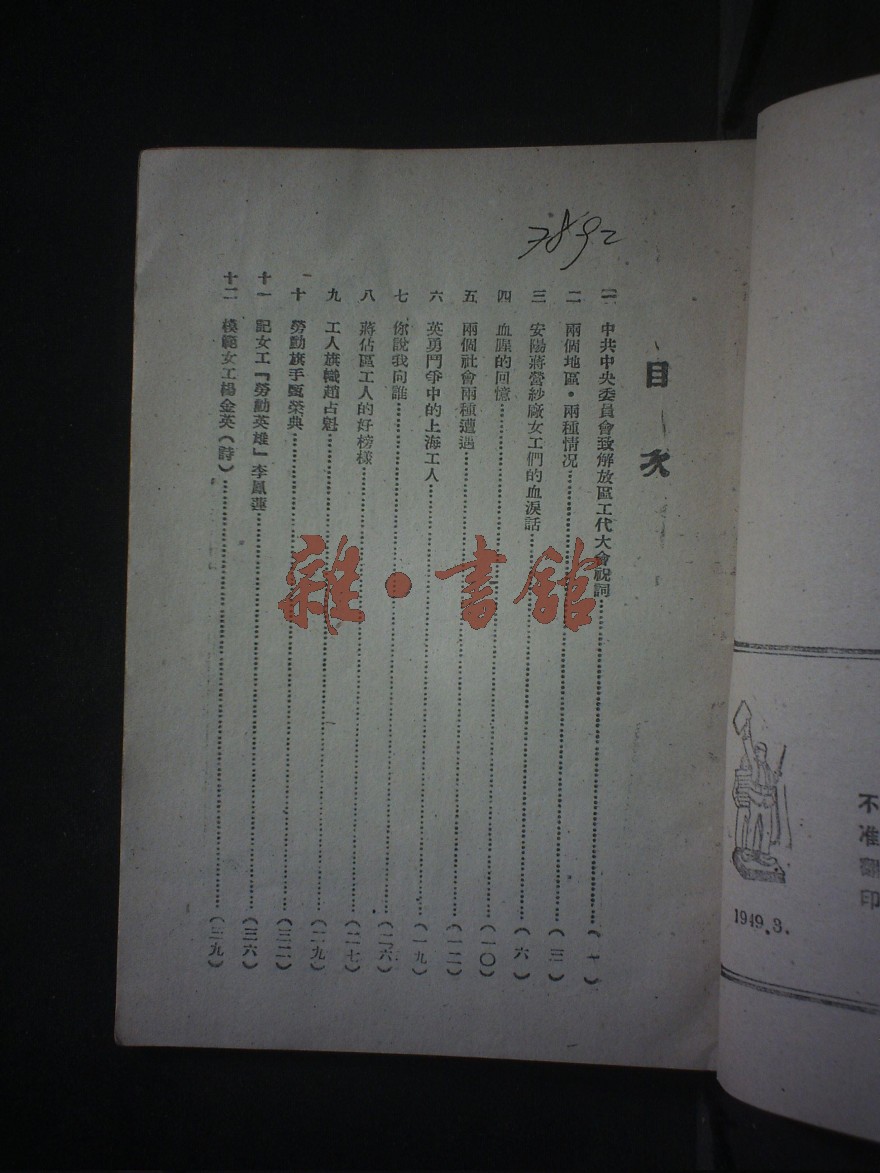 不准翻印
1949.3.
7892
目次
一 中共中央委員會致解放區工代大會祝詞……（一）
二 兩個地區・兩種情況……（三）
三 安陽蔣營紗廠女工們的血淚話……（六）
四 血腥的回憶……（一〇）
五 兩個社會兩種遭遇……（一二）
六 英勇鬥爭中的上海工人……（一九）
七 你說我向誰……（二六）
八 蔣佔區工人的好榜樣……（二七）
九 工人旗幟趙占魁……（二九）
十 勞動旗手甄榮典……（三二）
十一 記女工「勞動英雄」李鳳蓮……（三六）
十二 模範女工楊金英（詩）……（三九）
雜・書館